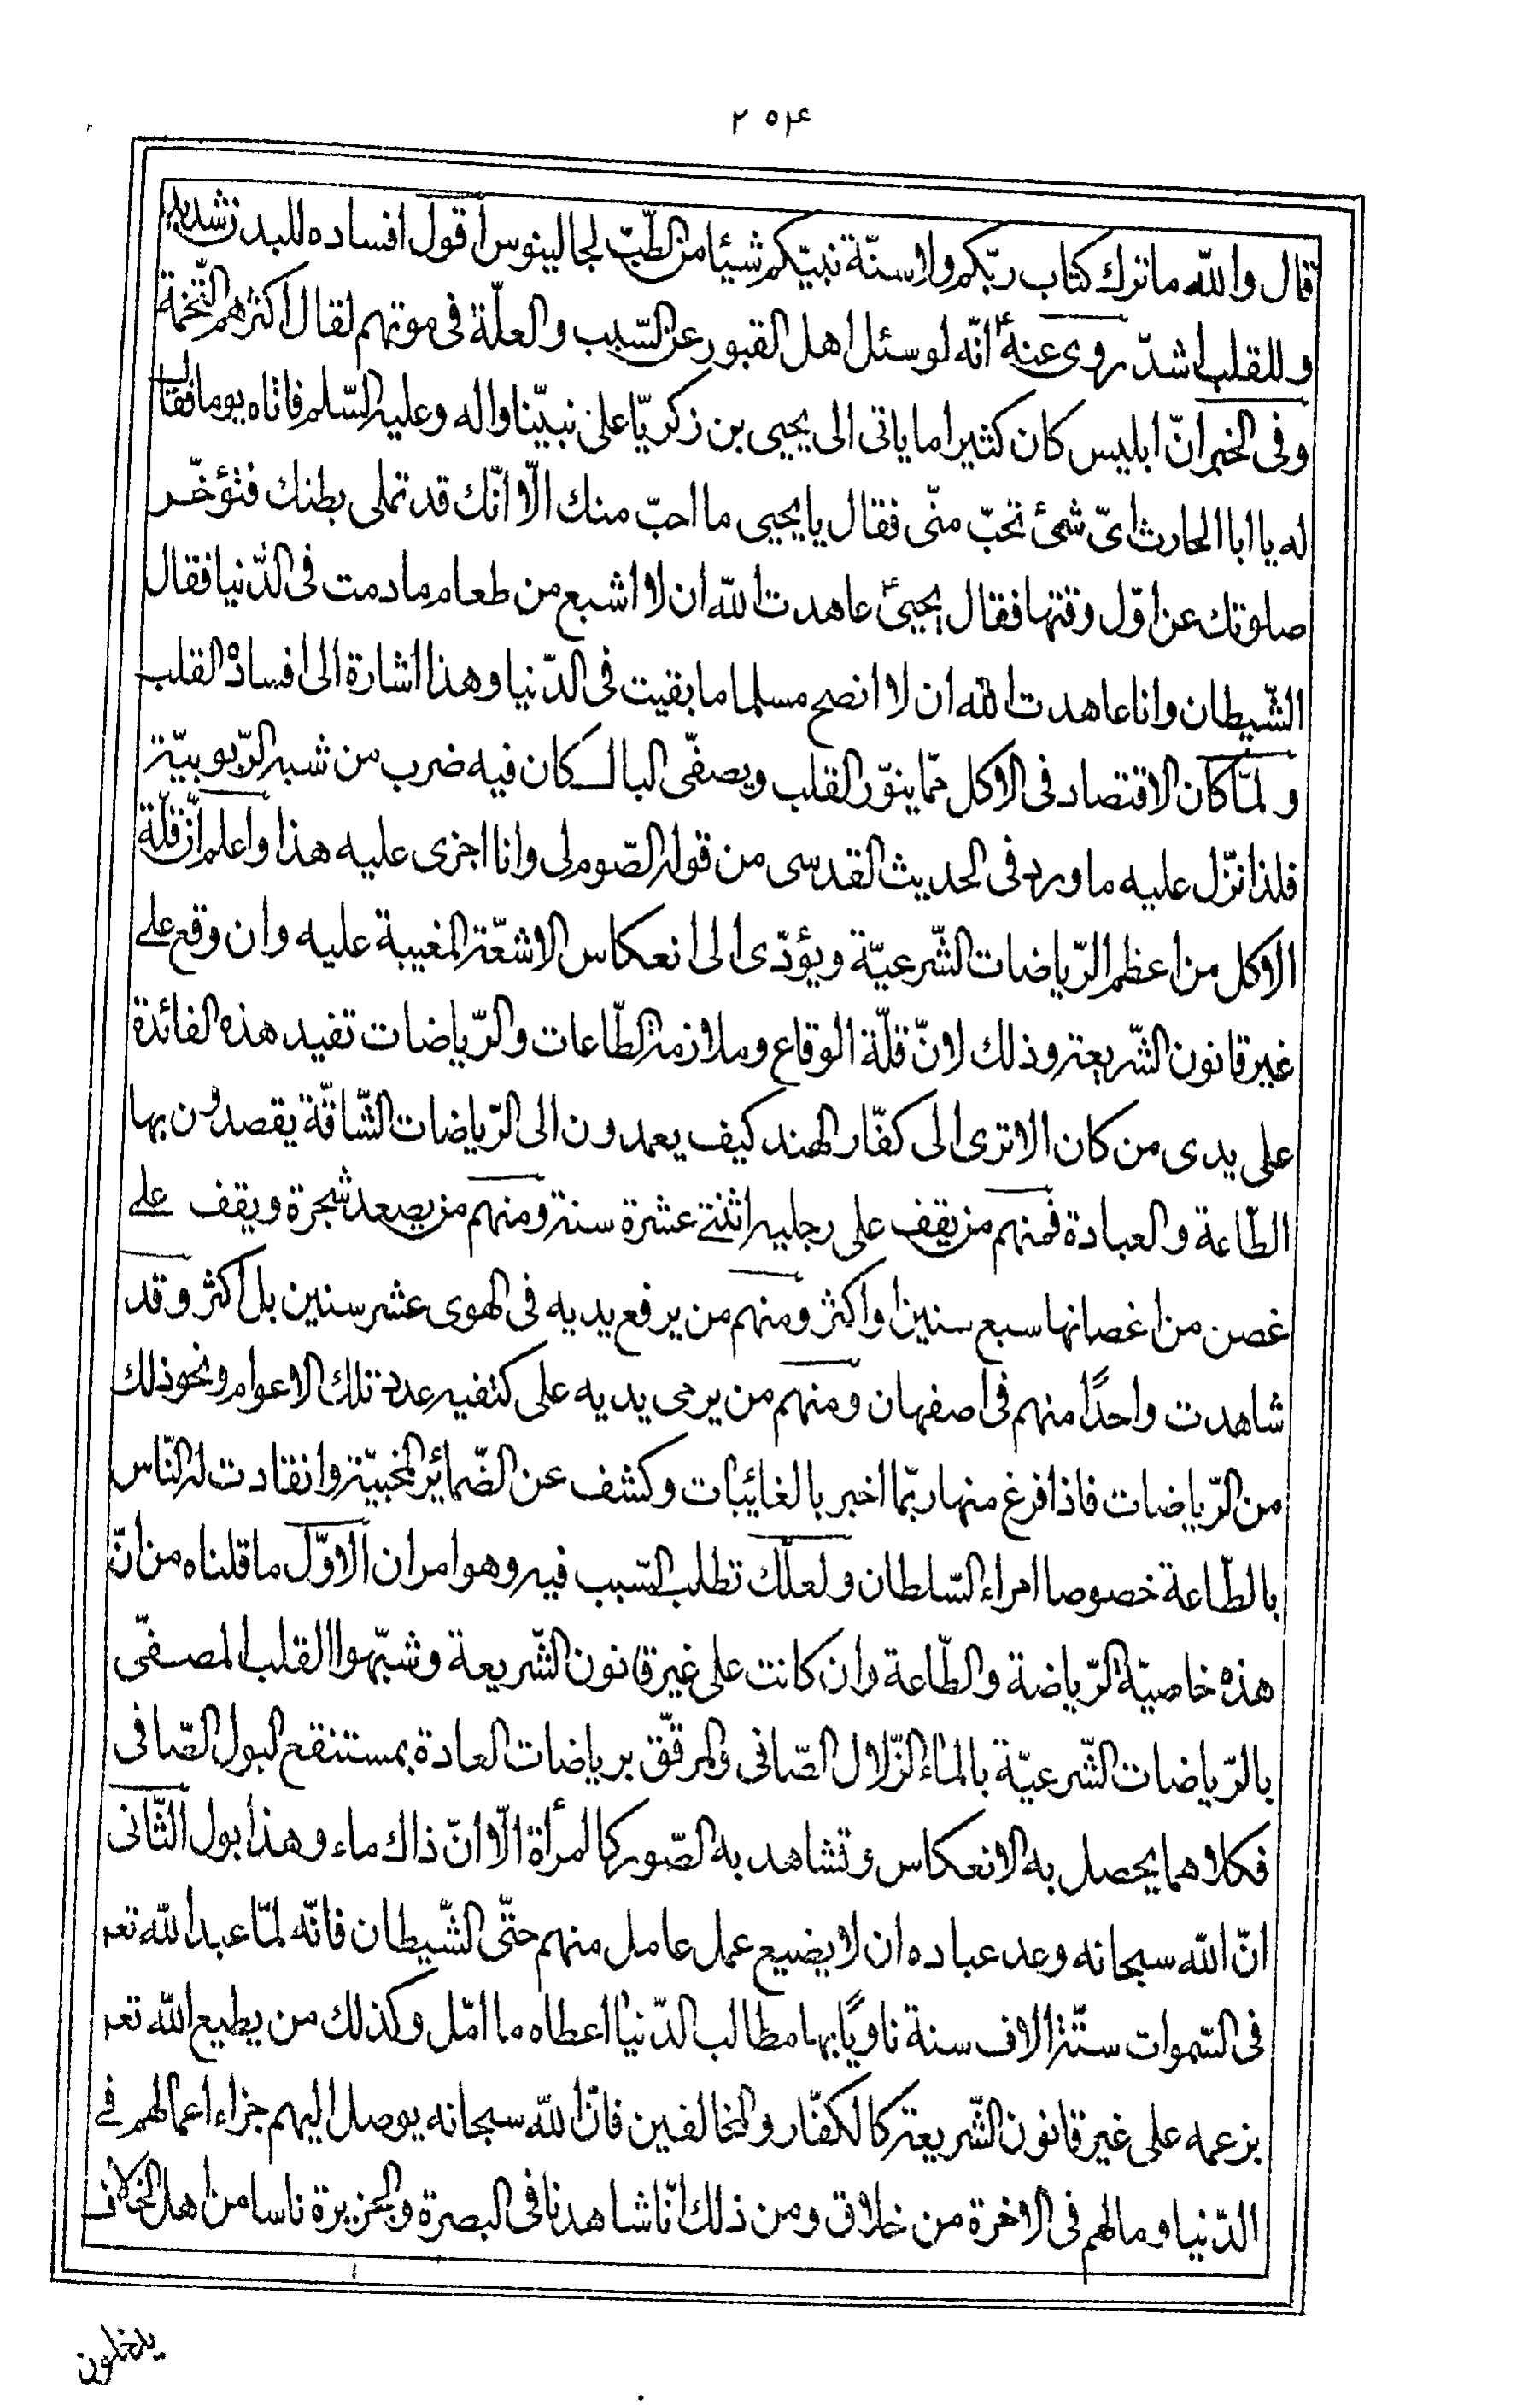 ٢٥۴
قال والله ما ترك كتاب ربّكم ولا سنّة نبيّكم شيئا من الطّبّ لجالينوس اقول افساده للبدن شديد
وللقلب اشدّ روى عنه ؑ انّه لو سئل اهل القبور عن السّبب والعلّة فى موتهم لقال اكثرهم التّخمة
وفى الخبر انّ ابليس كان كثيرا ما ياتى الى يحيى بن زكريّا على نبيّنا واله وعليه السّلم فاتاه يوما فقال
له يا ابا الحارث اىّ شئ تحبّ منّى فقال يا يحيى ما احبّ منك الّا انّك قد تملى بطنك فتؤخّر
صلوتك عن اوّل وقتها فقال يحيى ؑ عاهدت الله ان لا اشبع من طعام ما دمت فى الدّنيا فقال
الشّيطان وانا عاهدت الله ان لا انصح مسلما ما بقيت فى الدّنيا وهذا اشارة الى افساده القلب
ولمّا كان الاقتصاد فى الاكل ممّا ينوّر القلب ويصفّى البال كان فيه ضرب من شبه الرّبوبيّة
فلذا نزّل عليه ما ورد فى الحديث القدسى من قوله الصّوم لى وانا اجزى عليه هذا واعلم انّ قلّة
الاكل من اعظم الرّياضات الشّرعيّة ويؤدّى الى انعكاس الاشعّة المغيبة عليه وان وقع على
غير قانون الشّريعة وذلك لانّ قلّة الوقاع وملازمة الطّاعات والرّياضات تفيد هذه الفائدة
على يدى من كان الا ترى الى كفّار الهند كيف يعمدون الى الرّياضات الشّاقّة يقصدون بها
الطّاعة والعبادة فمنهم من يقف على رجليه اثنتى عشرة سنة ومنهم من يصعد شجرة ويقف على
غصن من اغصانها سبع سنين او اكثر ومنهم من يرفع يديه فى الهوى عشر سنين بل اكثر وقد
شاهدت واحدًا منهم فى اصفهان ومنهم من يرمى يديه على كتفيه عدد تلك الاعوام ونحو ذلك
من الرّياضات فاذا فرغ منها ربّما اخبر بالغائبات وكشف عن الضّمائر المخبيّة وانقادت له النّاس
بالطّاعة خصوصا امراء السّلطان ولعلّك تطلب السّبب فيه وهو امران الاوّل ما قلناه من انّ
هذه خاصيّة الرّياضة والطّاعة وان كانت على غير قانون الشّريعة وشبّهوا القلب المصفّى
بالرّياضات الشّرعيّة بالماء الزّلال الصّافى والمرقّق برياضات العادة بمستنقع البول الصّافى
فكلاهما يحصل به الانعكاس وتشاهد به الصّور كالمرأة الّا انّ ذاك ماء وهذا بول الثّانى
انّ الله سبحانه وعد عباده ان لا يضيع عمل عامل منهم حتّى الشّيطان فانّه لمّا عبد الله تعه
فى السّموات ستّة الاف سنة ناويًا بها مطالب الدّنيا اعطاه ما امّل وكذلك من يطيع الله تعه
بزعمه على غير قانون الشّريعة كالكفّار والمخالفين فانّ الله سبحانه يوصل اليهم جزاء اعمالهم فى
الدّنيا وما لهم فى الاخرة من خلاق ومن ذلك انّا شاهدنا فى البصرة والجزيرة ناسا من اهل الخلاف
يدخلون